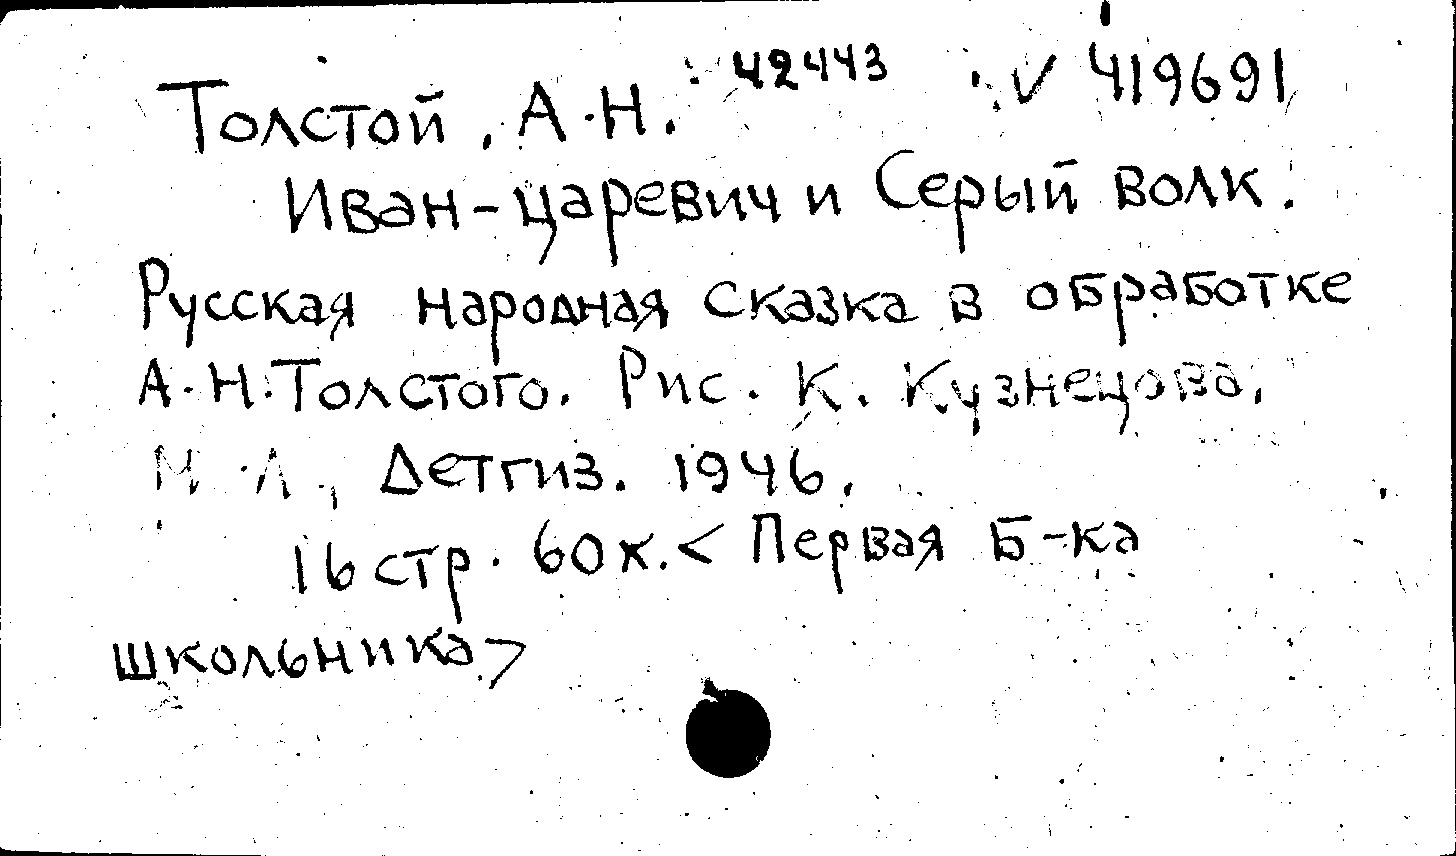 Толстой, А.Н. 42443 √ 419691
Иван-царевич и Серый волк.
Русская народная сказка в обработке
А.Н.Толстого. Рис. К. Кузнецова.
М.-Л., Детгиз. 1946.
16 стр. 60 к. < Первая Б-ка
школьника >